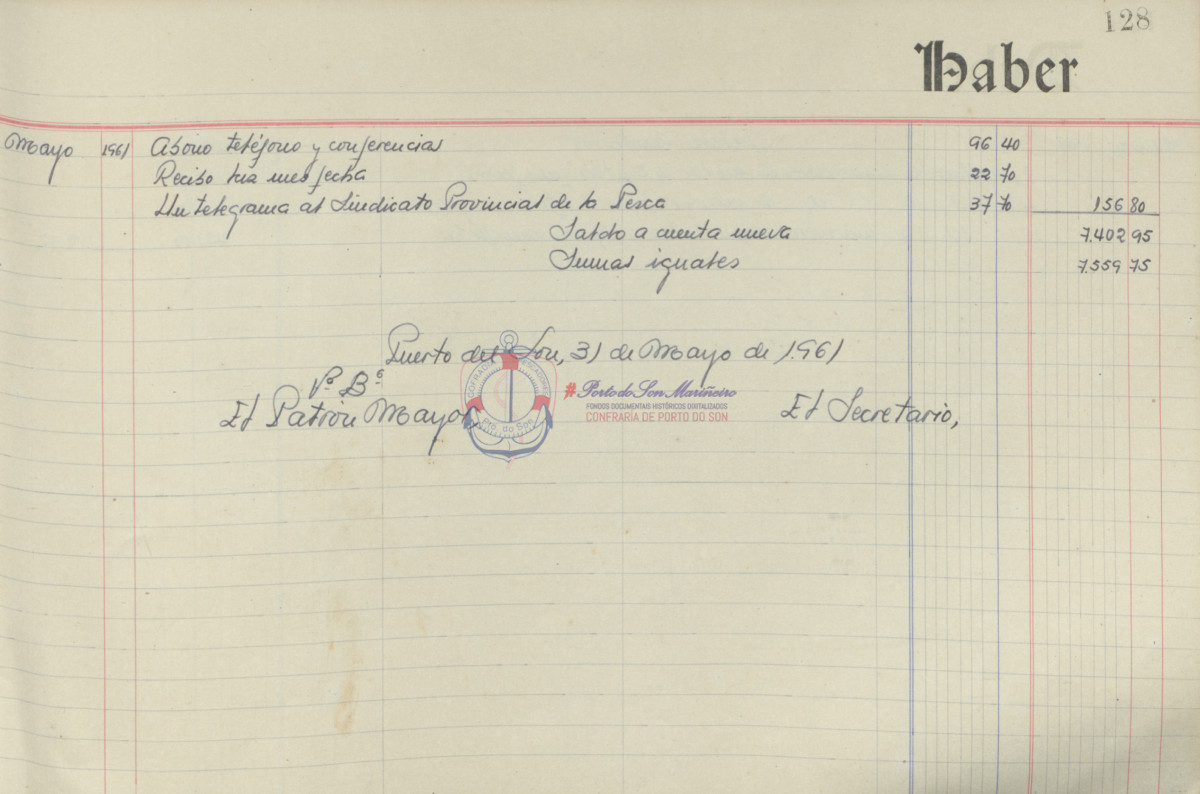 128
Haber
Mayo 1961 Abono teléfono y conferencias 96 40
Recibo luz mes fecha 22 70
Un telegrama al Sindicato Provincial de la Pesca 37 70 156 80
Saldo a cuenta nueva 7.402 95
Sumas iguales 7.559 75
Puerto del Son, 31 de Mayo de 1.961
Vº Bº
El Patrón Mayor,
El Secretario,
COFRADÍA PESCADORES
Pto. do Son
#Porto do Son Mariñeiro
FONDOS DOCUMENTAIS HISTÓRICOS DIGITALIZADOS
CONFRARÍA DE PORTO DO SON